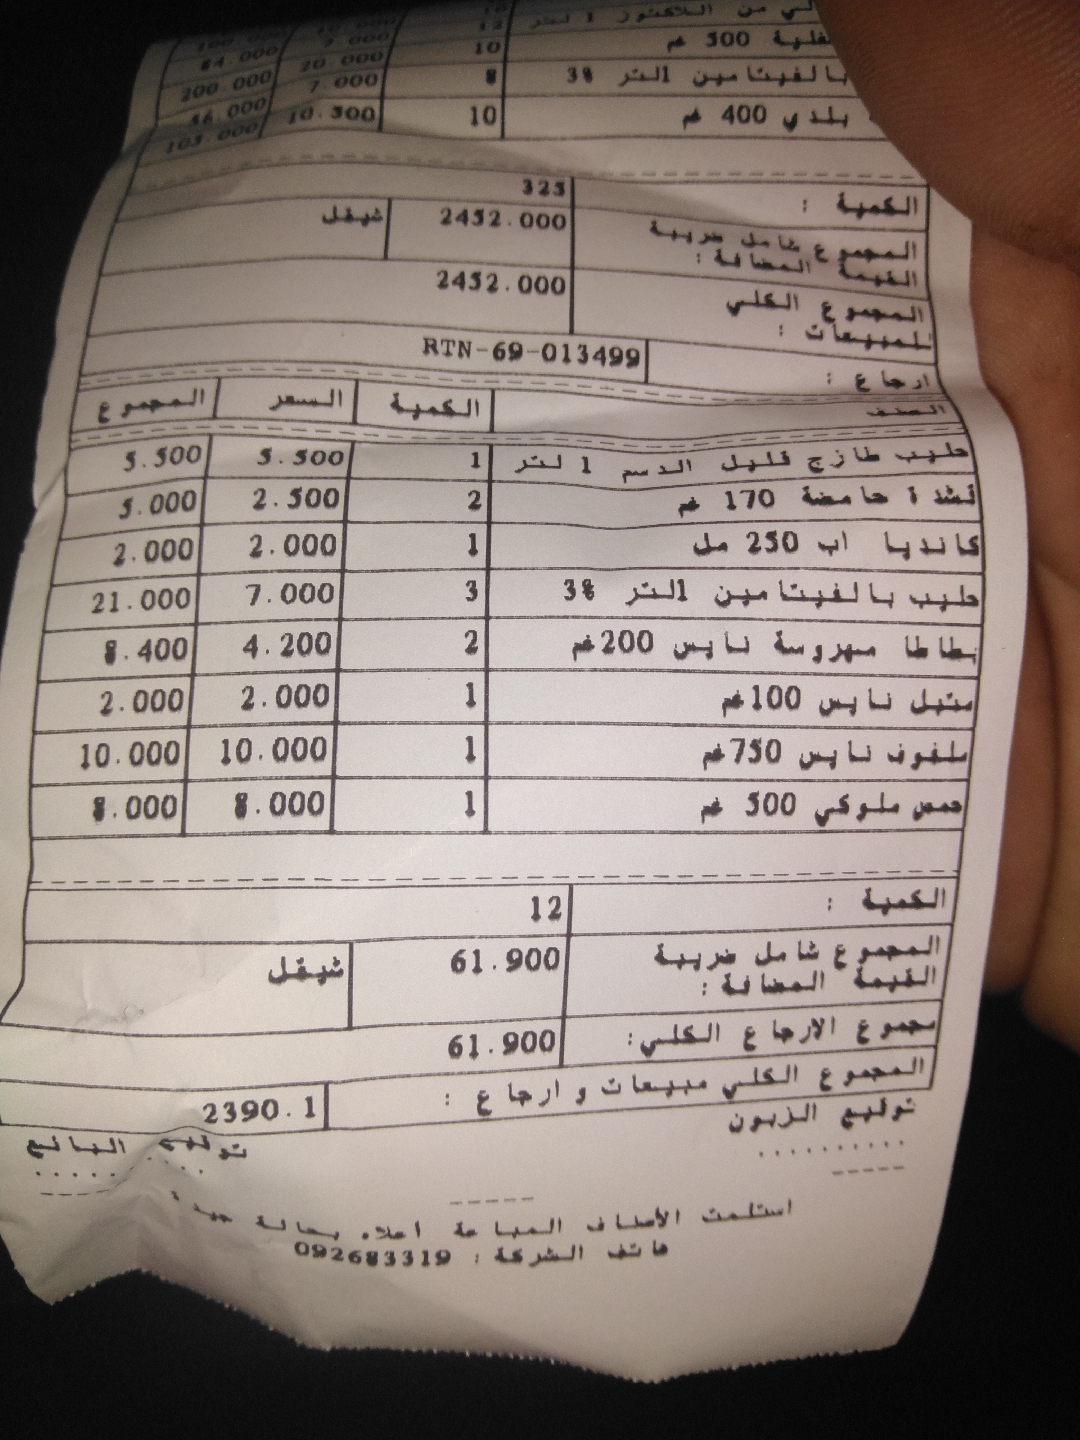 ي من اللاكتوز 1 لتر 12 7.000 84.000
ـغلية 500 غم 10 20.000 200.000
بالفيتامين 1لتر 3% 8 7.000 56.000
بلدي 400 غم 10 10.300 103.000
الكمية : 325
المجموع شامل ضريبة القيمة المضافة : 2452.000 شيقل
المجموع الكلي للمبيعات : 2452.000
ارجاع : RTN-69-013499
الصنف الكمية السعر المجموع
حليب طازج قليل الدسم 1 لتر 1 5.500 5.500
قشدة حامضة 170 غم 2 2.500 5.000
كانديا اب 250 مل 1 2.000 2.000
حليب بالفيتامين 1لتر 3% 3 7.000 21.000
بطاطا مهروسة نايس 200غم 2 4.200 8.400
متبل نايس 100غم 1 2.000 2.000
ملفوف نايس 750غم 1 10.000 10.000
حمص ملوكي 500 غم 1 8.000 8.000
الكمية : 12
المجموع شامل ضريبة القيمة المضافة : 61.900 شيقل
مجموع الارجاع الكلي: 61.900
المجموع الكلي مبيعات و ارجاع : 2390.1
توقيع الزبون توقيع البائع
استلمت الأصناف المباعة اعلاه بحالة جيدة
هاتف الشركة : 092683319